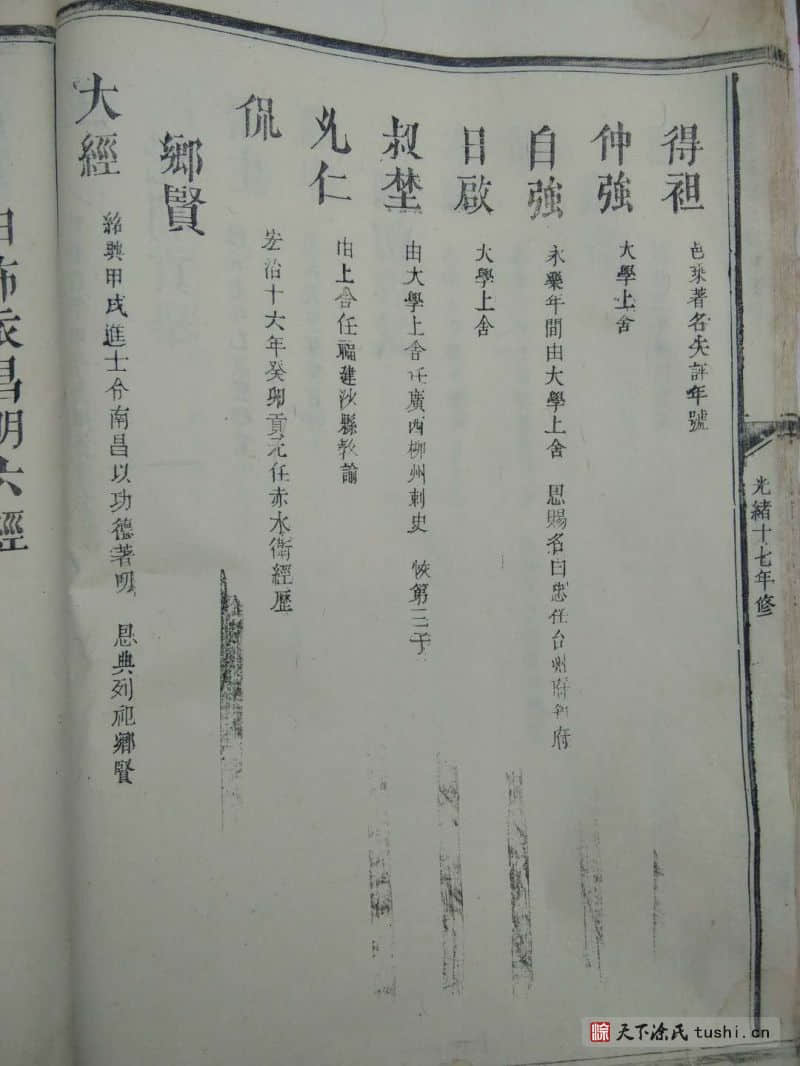 光緒十七年修
得袒 邑乘著名失詳年號
仲強 大學上舍
自強 永樂年間由大學上舍 恩賜名曰忠任台州府知府
日啟 大學上舍
叔埜 由大學上舍任廣西柳州刺史 恢第三子
允仁 由上舍任福建沙縣教諭
侃 宏治十六年癸卯貢元任赤水衛經歷
鄉賢
大經 紹興甲戌進士令南昌以功德著明 恩典列祀鄉賢
昌明六經
天下涂氏 tushi.cn